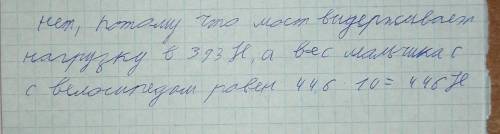 нет, потому что мост видерживает
нагрузку в 393 Н, а вес мальчика с
с велосипедом равен 44,6 · 10 = 446 Н